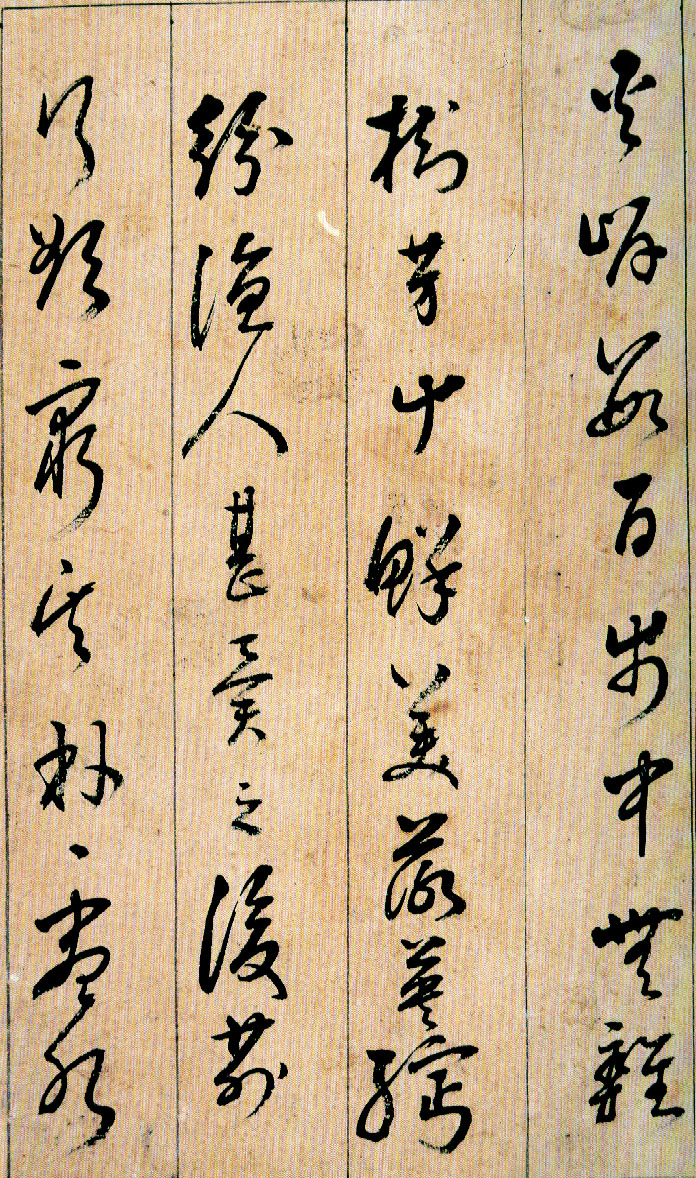 夾岸數百步中無雜
樹芳草鮮美落英繽
紛漁人甚異之復前
行欲窮其林々盡水